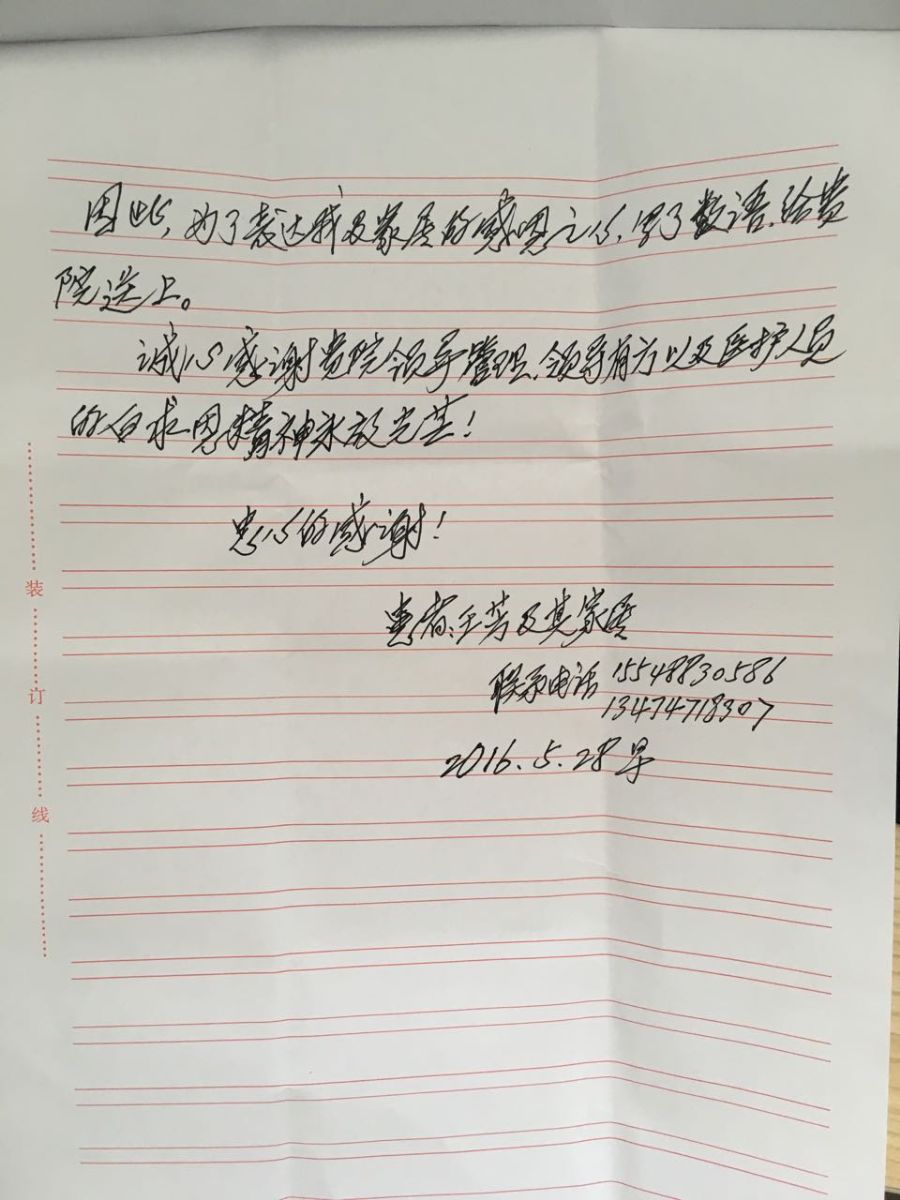 因此,为了表达我及家属的感恩之心,写了数语,给贵
院送上。
诚心感谢贵院领导管理、领导有方以及医护人员
的白求恩精神永放光芒!
忠心的感谢!
患者:王芳及其家属
联系电话 15548830586
13474718307
2016.5.28早
装
订
线